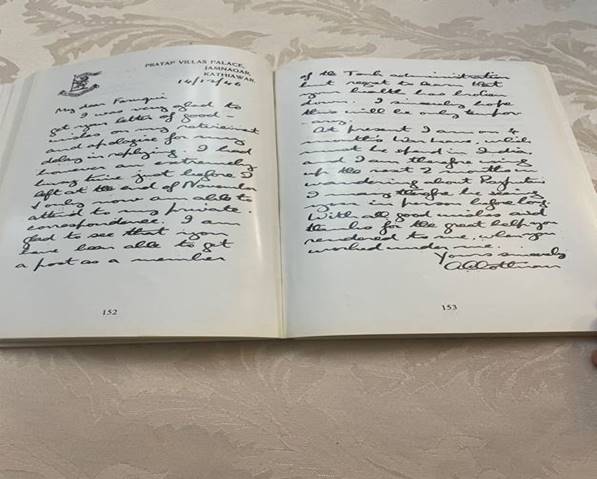 PRATAP VILLAS PALACE,
JAMNAGAR,
KATHIAWAR.
14/12/46
My dear
I was very glad to
get your letter of good-
wishes on my retirement
and apologise for my
delay in replying. I had
however an extremely
busy time just before I
left at the end of November
& only now am able to
attend to my private
correspondence. I am
glad to see that you
have been able to get
a post as a member
152
of the Tonk administration
but regret to learn that
your health has broken
down. I sincerely hope
this will be only tempor-
ary.
At present I am on 4
months leave, which
must be spent in India
and I am therefore
up the next 2 months
wandering about Rajputana
I may therefore be seeing
you in person before long.
With all good wishes and
thanks for the great help you
rendered to me, when you
worked under me.
Yours sincerely
153